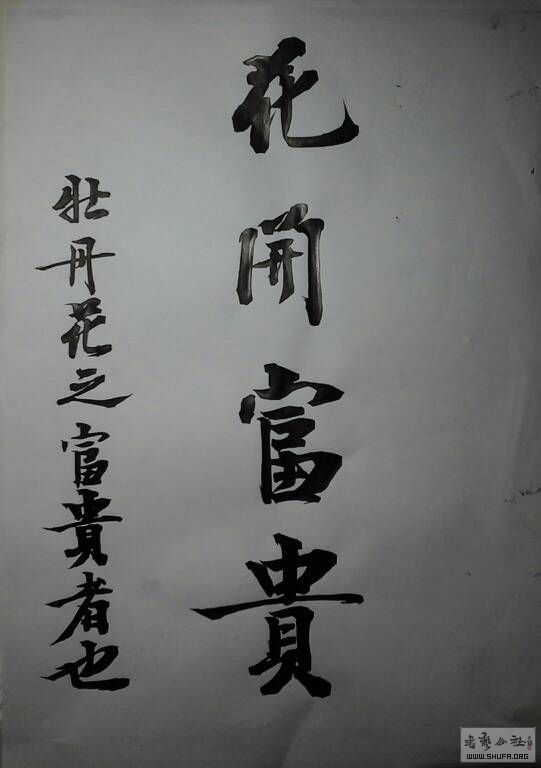 花開富貴
牡丹花之富貴者也
書藝公社
WWW.SHUFA.ORG